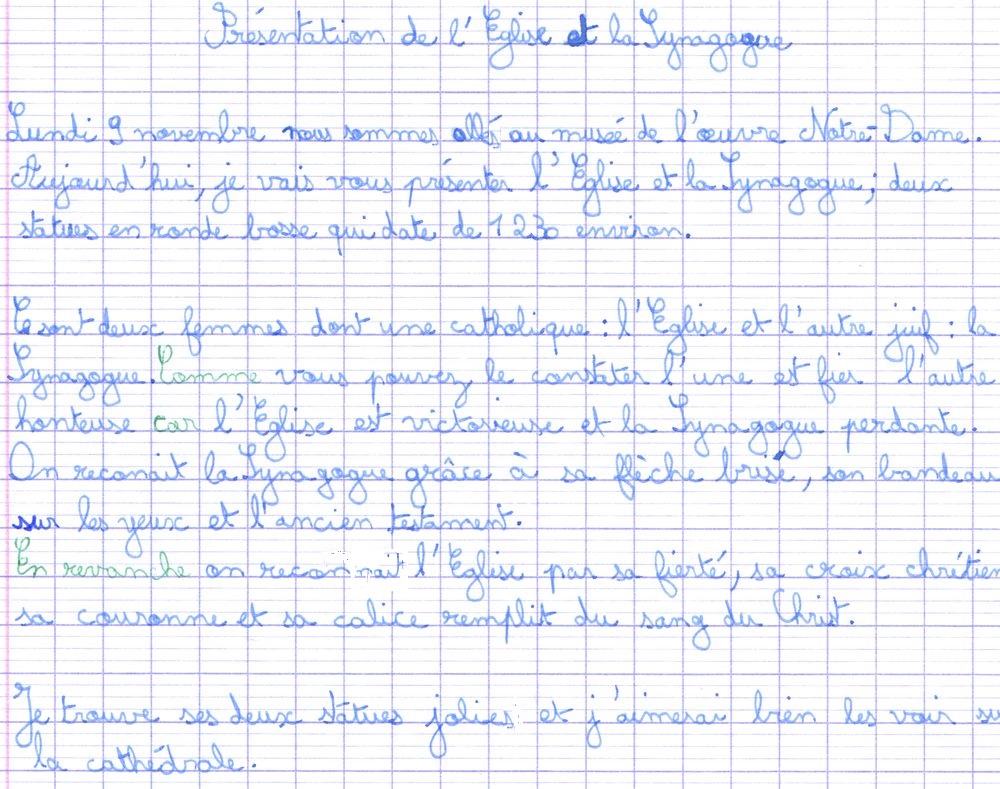 Présentation de l'Eglise et la Synagogue
Lundi 9 novembre nous sommes allés au museé de l'œuvre Notre-Dame.
Aujourd'hui, je vais vous présenter l'Eglise et la Synagogue ; deux
statues en ronde bosse qui date de 1230 environ.
Ce sont deux femmes dont une catholique : l'Eglise et l'autre juif : la
Synagogue. Comme vous pouvez le constater l'une est fier l'autre
honteuse car l'Eglise est victorieuse et la Synagogue perdante.
On reconait la Synagogue grâce à sa flèche brisé, son bandeau
sur les yeux et l'ancien testament.
En revanche on reconnait l'Eglise par sa fierté, sa croix chrétien
sa couronne et sa calice remplit du sang du Christ.
Je trouve ses deux statues jolies et j'aimerai bien les voir su
la cathédrale.